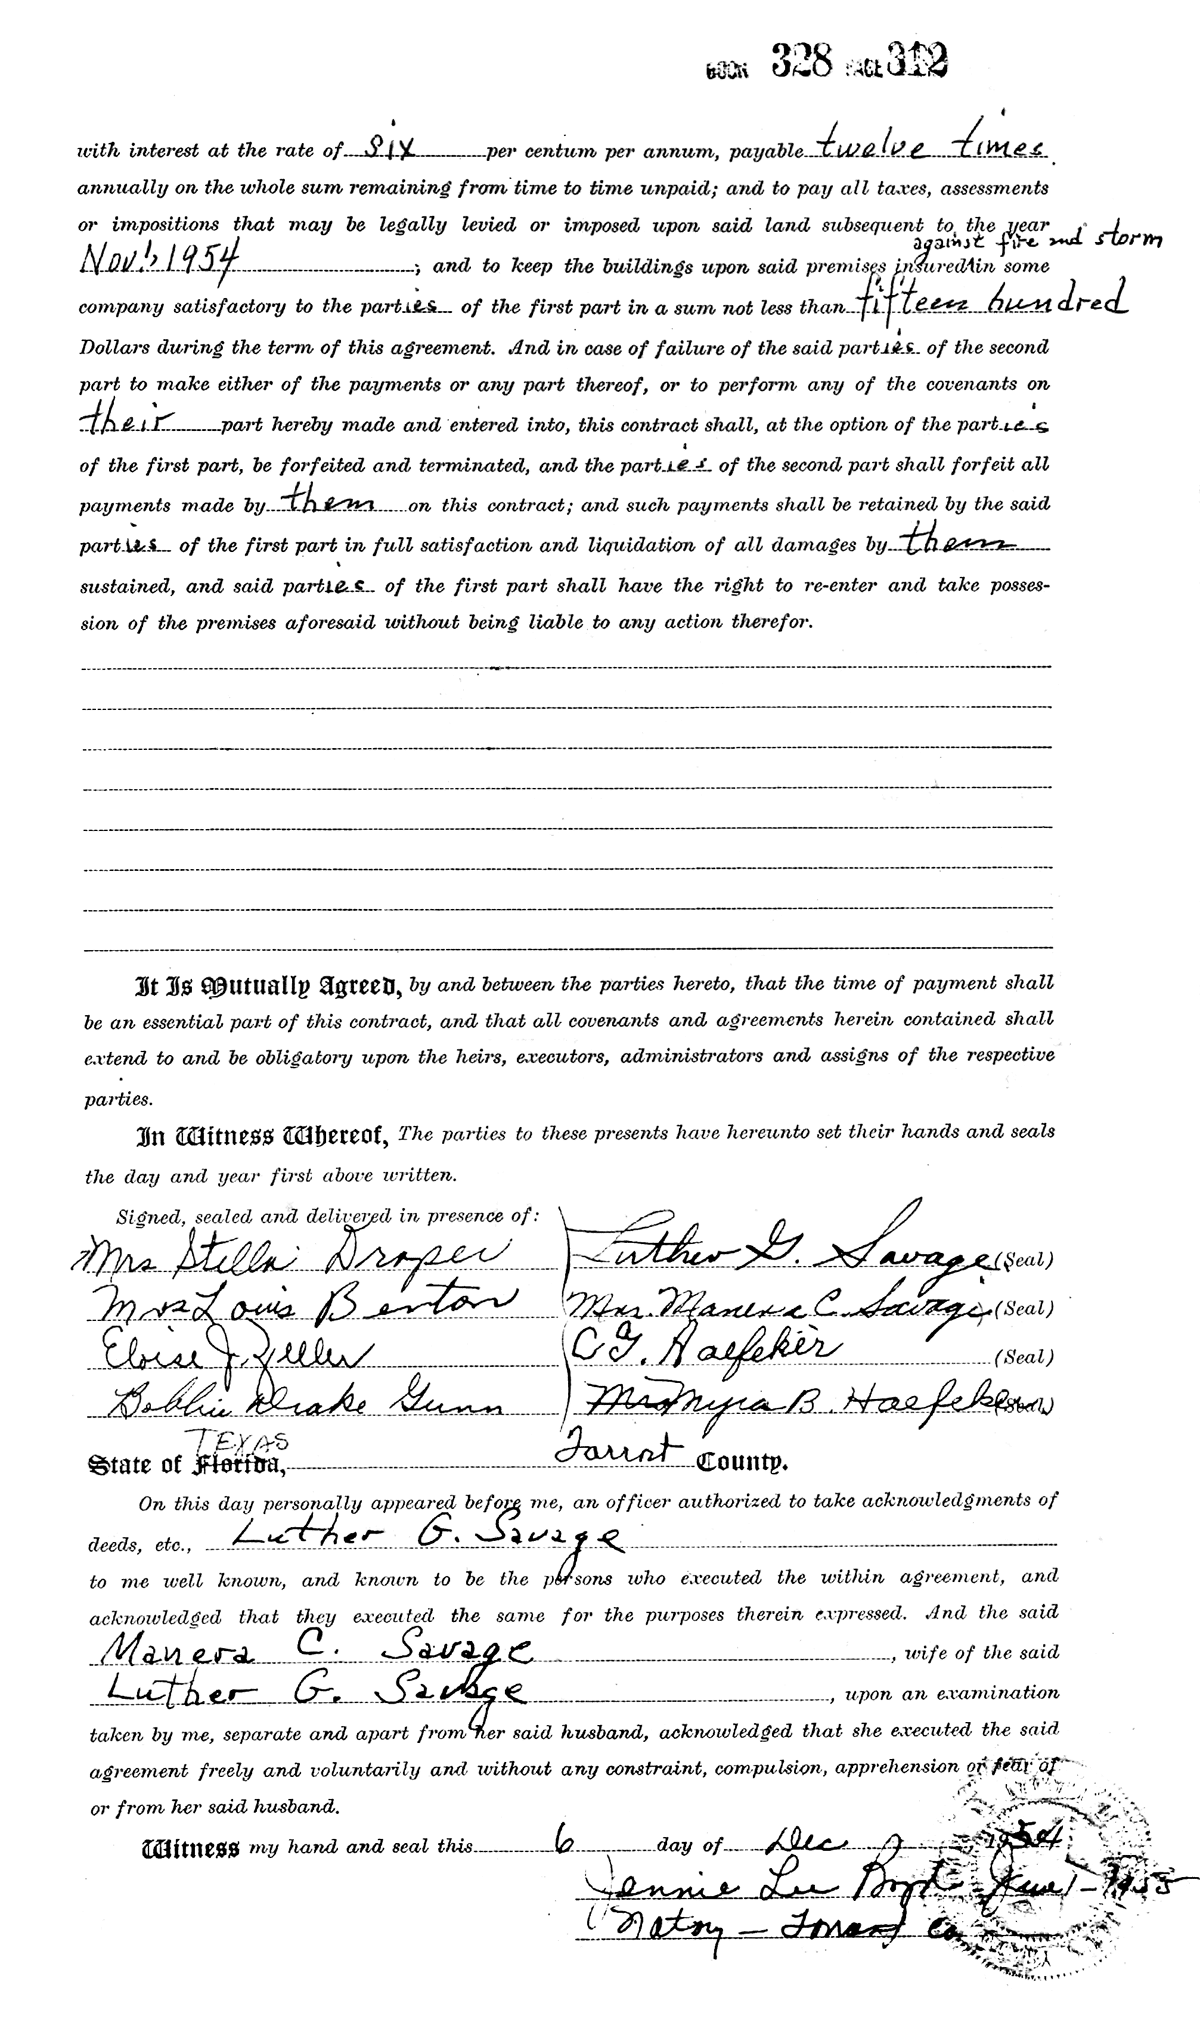 BOOK 328 PAGE 312
with interest at the rate of six per centum per annum, payable twelve times
annually on the whole sum remaining from time to time unpaid; and to pay all taxes, assessments
or impositions that may be legally levied or imposed upon said land subsequent to the year
against fire and storm
Nov. 1, 1954 ; and to keep the buildings upon said premises insured^in some
company satisfactory to the parties of the first part in a sum not less than fifteen hundred
Dollars during the term of this agreement. And in case of failure of the said parties of the second
part to make either of the payments or any part thereof, or to perform any of the covenants on
their part hereby made and entered into, this contract shall, at the option of the parties
of the first part, be forfeited and terminated, and the parties of the second part shall forfeit all
payments made by them on this contract; and such payments shall be retained by the said
parties of the first part in full satisfaction and liquidation of all damages by them
sustained, and said parties of the first part shall have the right to re-enter and take posses-
sion of the premises aforesaid without being liable to any action therefor.
It Is Mutually Agreed, by and between the parties hereto, that the time of payment shall
be an essential part of this contract, and that all covenants and agreements herein contained shall
extend to and be obligatory upon the heirs, executors, administrators and assigns of the respective
parties.
In Witness Whereof, The parties to these presents have hereunto set their hands and seals
the day and year first above written.
Signed, sealed and delivered in presence of:
Mrs Stella Draper Luther G. Savage (Seal)
Mrs Louis Benton Mrs. Manera C. Savage (Seal)
Eloise J. Zeller C G. Haefeker (Seal)
Bobbie Drake Gunn Mrs Myra B. Haefeker (Seal)
TEXAS
State of Florida, Tarrant County.
On this day personally appeared before me, an officer authorized to take acknowledgments of
deeds, etc., Luther G. Savage
to me well known, and known to be the persons who executed the within agreement, and
acknowledged that they executed the same for the purposes therein expressed. And the said
Manera C. Savage , wife of the said
Luther G. Savage , upon an examination
taken by me, separate and apart from her said husband, acknowledged that she executed the said
agreement freely and voluntarily and without any constraint, compulsion, apprehension or fear of
or from her said husband.
Witness my hand and seal this 6 day of Dec 1954
Jennie Lee Boyd June 1-1955
Notary - Tarrant Co